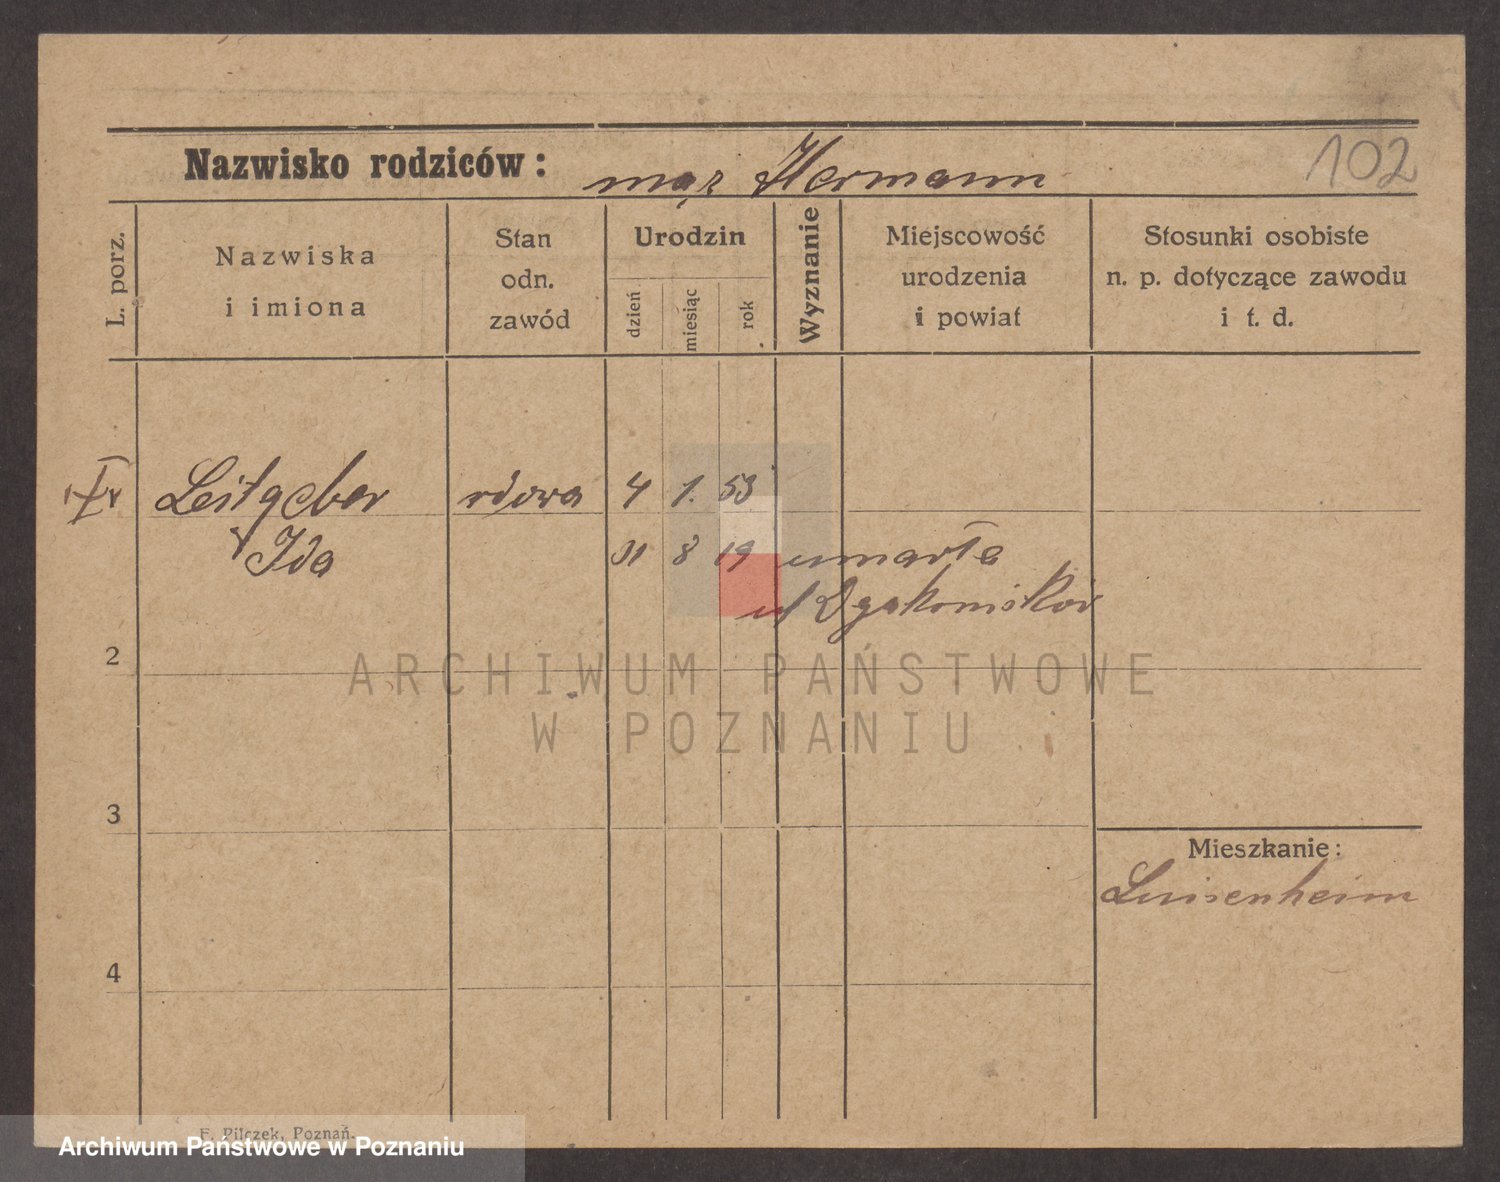 102
Nazwisko rodziców: mąż Hermann
L. porz.
Nazwiska
i imiona
Stan
odn.
zawód
Urodzin
dzień
miesiąc
rok
Wyznanie
Miejscowość
urodzenia
i powiat
Stosunki osobiste
n. p. dotyczące zawodu
i t. d.
Leitgeber wdowa 4 1. 53
Ida 31 8 19 umarła
ul
2
ARCHIWUM PAŃSTWOWE
W POZNANIU
3
Mieszkanie:
Luisenheim
4
F. Pilczek, Poznań.
Archiwum Państwowe w Poznaniu